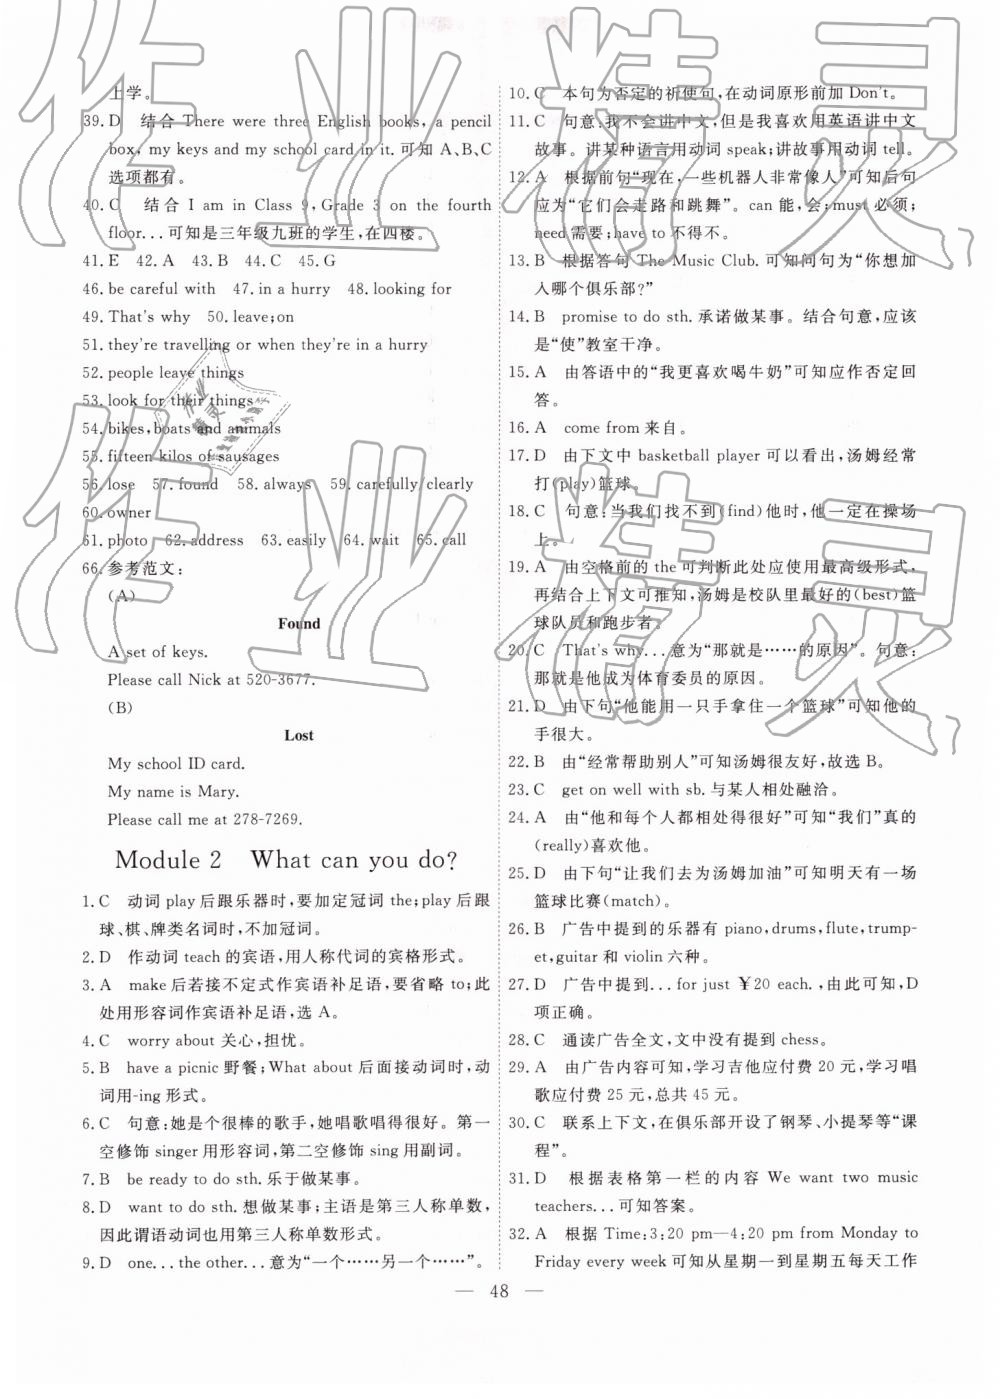 上学。
39. D 结合 There were three English books, a pencil
box, my keys and my school card in it. 可知 A、B、C
选项都有。
40. C 结合 I am in Class 9, Grade 3 on the fourth
floor... 可知是三年级九班的学生,在四楼。
41. E 42. A 43. B 44. C 45. G
46. be careful with 47. in a hurry 48. looking for
49. That's why 50. leave;on
51. they're travelling or when they're in a hurry
52. people leave things
53. look for their things
54. bikes, boats and animals
55. fifteen kilos of sausages
56. lose 57. found 58. always 59. carefully/clearly
60. owner
61. photo 62. address 63. easily 64. wait 65. call
66. 参考范文:
(A)
Found
A set of keys.
Please call Nick at 520-3677.
(B)
Lost
My school ID card.
My name is Mary.
Please call me at 278-7269.
Module 2 What can you do?
1. C 动词 play 后跟乐器时,要加定冠词 the;play 后跟
球、棋、牌类名词时,不加冠词。
2. D 作动词 teach 的宾语,用人称代词的宾格形式。
3. A make 后若接不定式作宾语补足语,要省略 to;此
处用形容词作宾语补足语,选 A。
4. C worry about 关心,担忧。
5. B have a picnic 野餐;What about 后面接动词时,动
词用-ing 形式。
6. C 句意:她是个很棒的歌手,她唱歌唱得很好。第一
空修饰 singer 用形容词,第二空修饰 sing 用副词。
7. B be ready to do sth. 乐于做某事。
8. D want to do sth. 想做某事;主语是第三人称单数,
因此谓语动词也用第三人称单数形式。
9. D one... the other... 意为“一个……另一个……”。
10. C 本句为否定的祈使句,在动词原形前加 Don't。
11. C 句意:我不会讲中文,但是我喜欢用英语讲中文
故事。讲某种语言用动词 speak;讲故事用动词 tell。
12. A 根据前句“现在,一些机器人非常像人”可知后句
应为“它们会走路和跳舞”。can 能,会;must 必须;
need 需要;have to 不得不。
13. B 根据答句 The Music Club. 可知问句为“你想加
入哪个俱乐部?”
14. B promise to do sth. 承诺做某事。结合句意,应该
是“使”教室干净。
15. A 由答语中的“我更喜欢喝牛奶”可知应作否定回
答。
16. A come from 来自。
17. D 由下文中 basketball player 可以看出,汤姆经常
打(play)篮球。
18. C 句意:当我们找不到(find)他时,他一定在操场
上。
19. A 由空格前的 the 可判断此处应使用最高级形式,
再结合上下文可推知,汤姆是校队里最好的(best)篮
球队员和跑步者。
20. C That's why... 意为“那就是……的原因”。句意:
那就是他成为体育委员的原因。
21. D 由下句“他能用一只手拿住一个篮球”可知他的
手很大。
22. B 由“经常帮助别人”可知汤姆很友好,故选 B。
23. C get on well with sb. 与某人相处融洽。
24. A 由“他和每个人都相处得很好”可知“我们”真的
(really)喜欢他。
25. D 由下句“让我们去为汤姆加油”可知明天有一场
篮球比赛(match)。
26. B 广告中提到的乐器有 piano, drums, flute, trump-
et, guitar 和 violin 六种。
27. D 广告中提到...for just ￥20 each. ,由此可知,D
项正确。
28. C 通读广告全文,文中没有提到 chess。
29. A 由广告内容可知,学习吉他应付费 20 元,学习唱
歌应付费 25 元,总共 45 元。
30. C 联系上下文,在俱乐部开设了钢琴、小提琴等“课
程”。
31. D 根据表格第一栏的内容 We want two music
teachers... 可知答案。
32. A 根据 Time:3:20 pm—4:20 pm from Monday to
Friday every week 可知从星期一到星期五每天工作
— 48 —
作业精灵
作业精灵